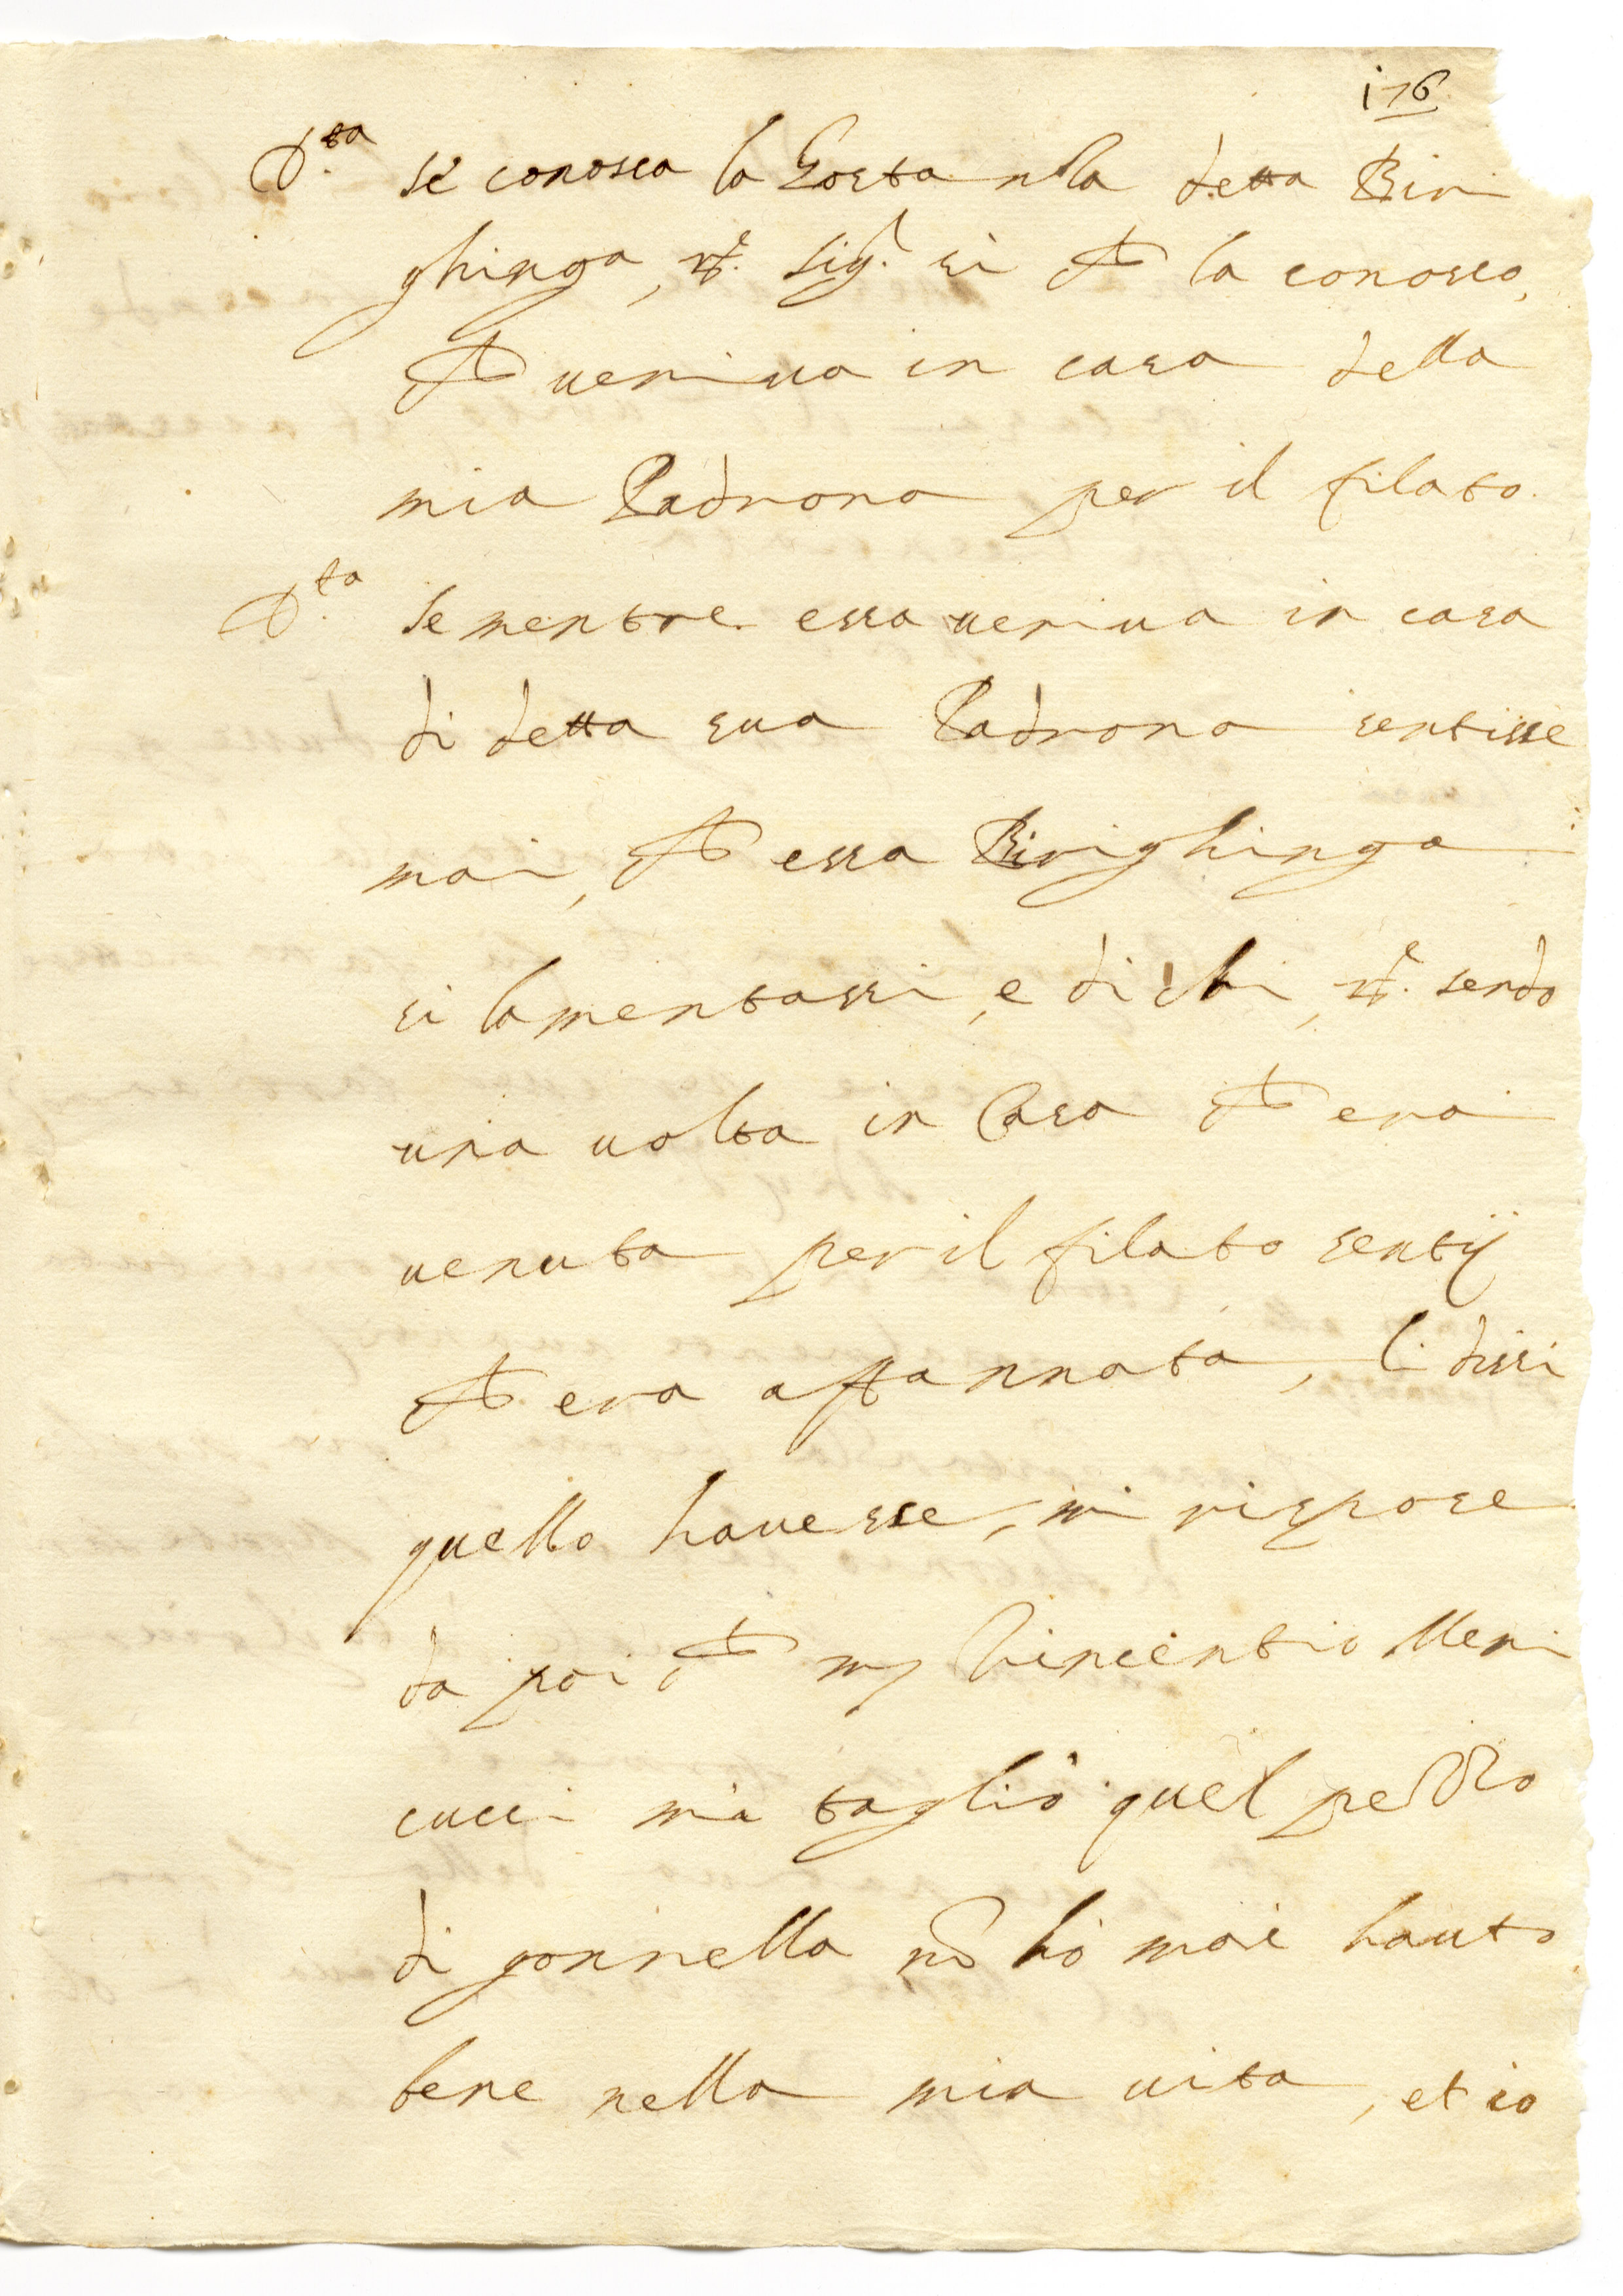 176
D.ta se conosca la Costanza detta Biri
ghinga, rs.e Sig.r si che la conosco,
che ueniua in casa della
mia Padrona per il filato.
D.ta Se mentre essa ueniua in casa
di detta sua Padrona sentisse
mai, che essa Birighinga
si lamentassi, e di chi, rs.e sendo
una uolta in Casa che era
uenuta per il filato sentij
che era affannata, li dissi
quello hauesse, mi rispose
da poi, che mr Vincentio Meni
cucci mi tagliò quel pezzo
di gonnella nō hò mai hauto
bene nella mia uita, et io